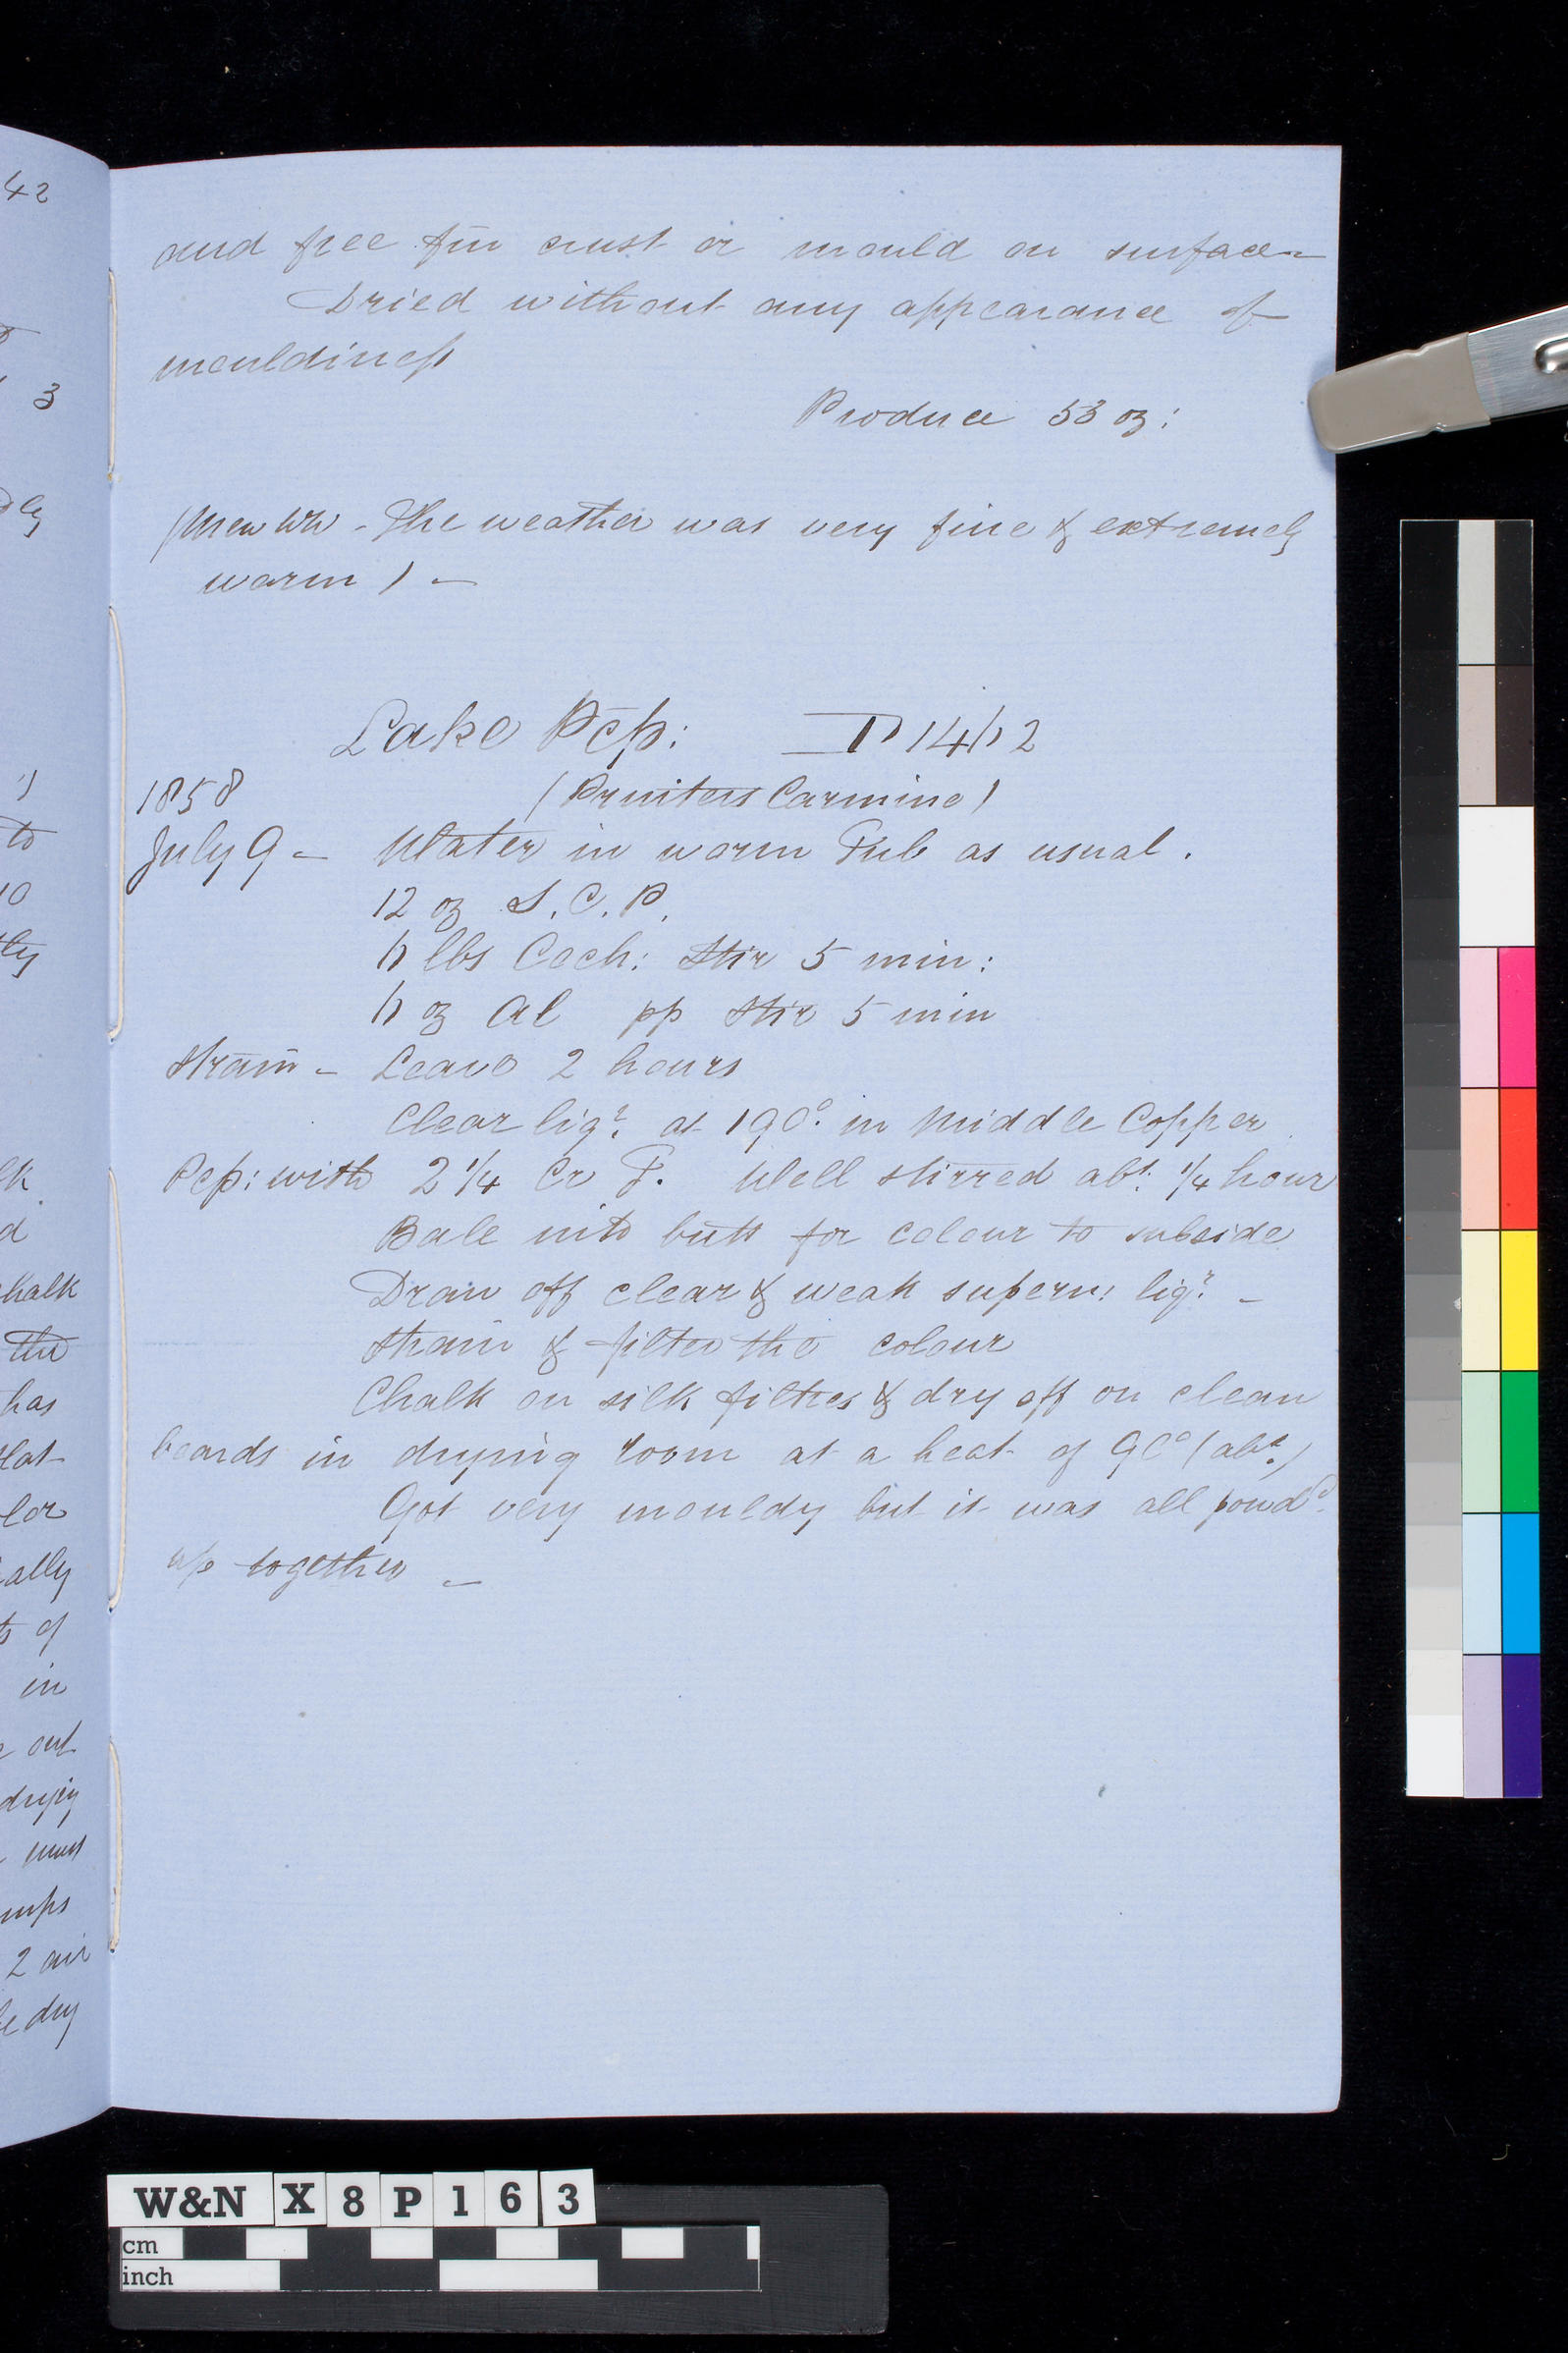 and free fm crust or mould on surface –
Dried without any appearance of
mouldiness
Produce 53 oz:
The weather was very fine & extremely
warm) –
Lake Pcp: 14 2
1858
(Printers Carmine)
July 9 – Water in warm Tub as usual.
12 oz S.C.P.
lbs Coch: Stir 5 min:
oz Al pp Stir 5 min
Strain – Leave 2 hours
Clear liqr. at 190°. in Middle Copper
Pcp: with 2 1/4 Cr T. Well stirred abt. 1/4 hour
Bale into butt for colour to subside
Draw off clear & weak supern: liqr. –
Strain & filter the colour
Chalk on silk filtres & dry off on clean
boards in drying room at a heat of 90° (abt.)
Got very mouldy but it was all powdd.
up together –
42
3
to
10
tly
lk
d
halk
the
has
lat
lor
ally
ts of
in
out
drying
must
umps
2 air
be dry
W&N X 8 P 1 6 3
cm
inch